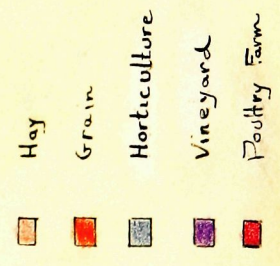 Hay
Grain
Horticulture
Vineyard
Poultry Farm